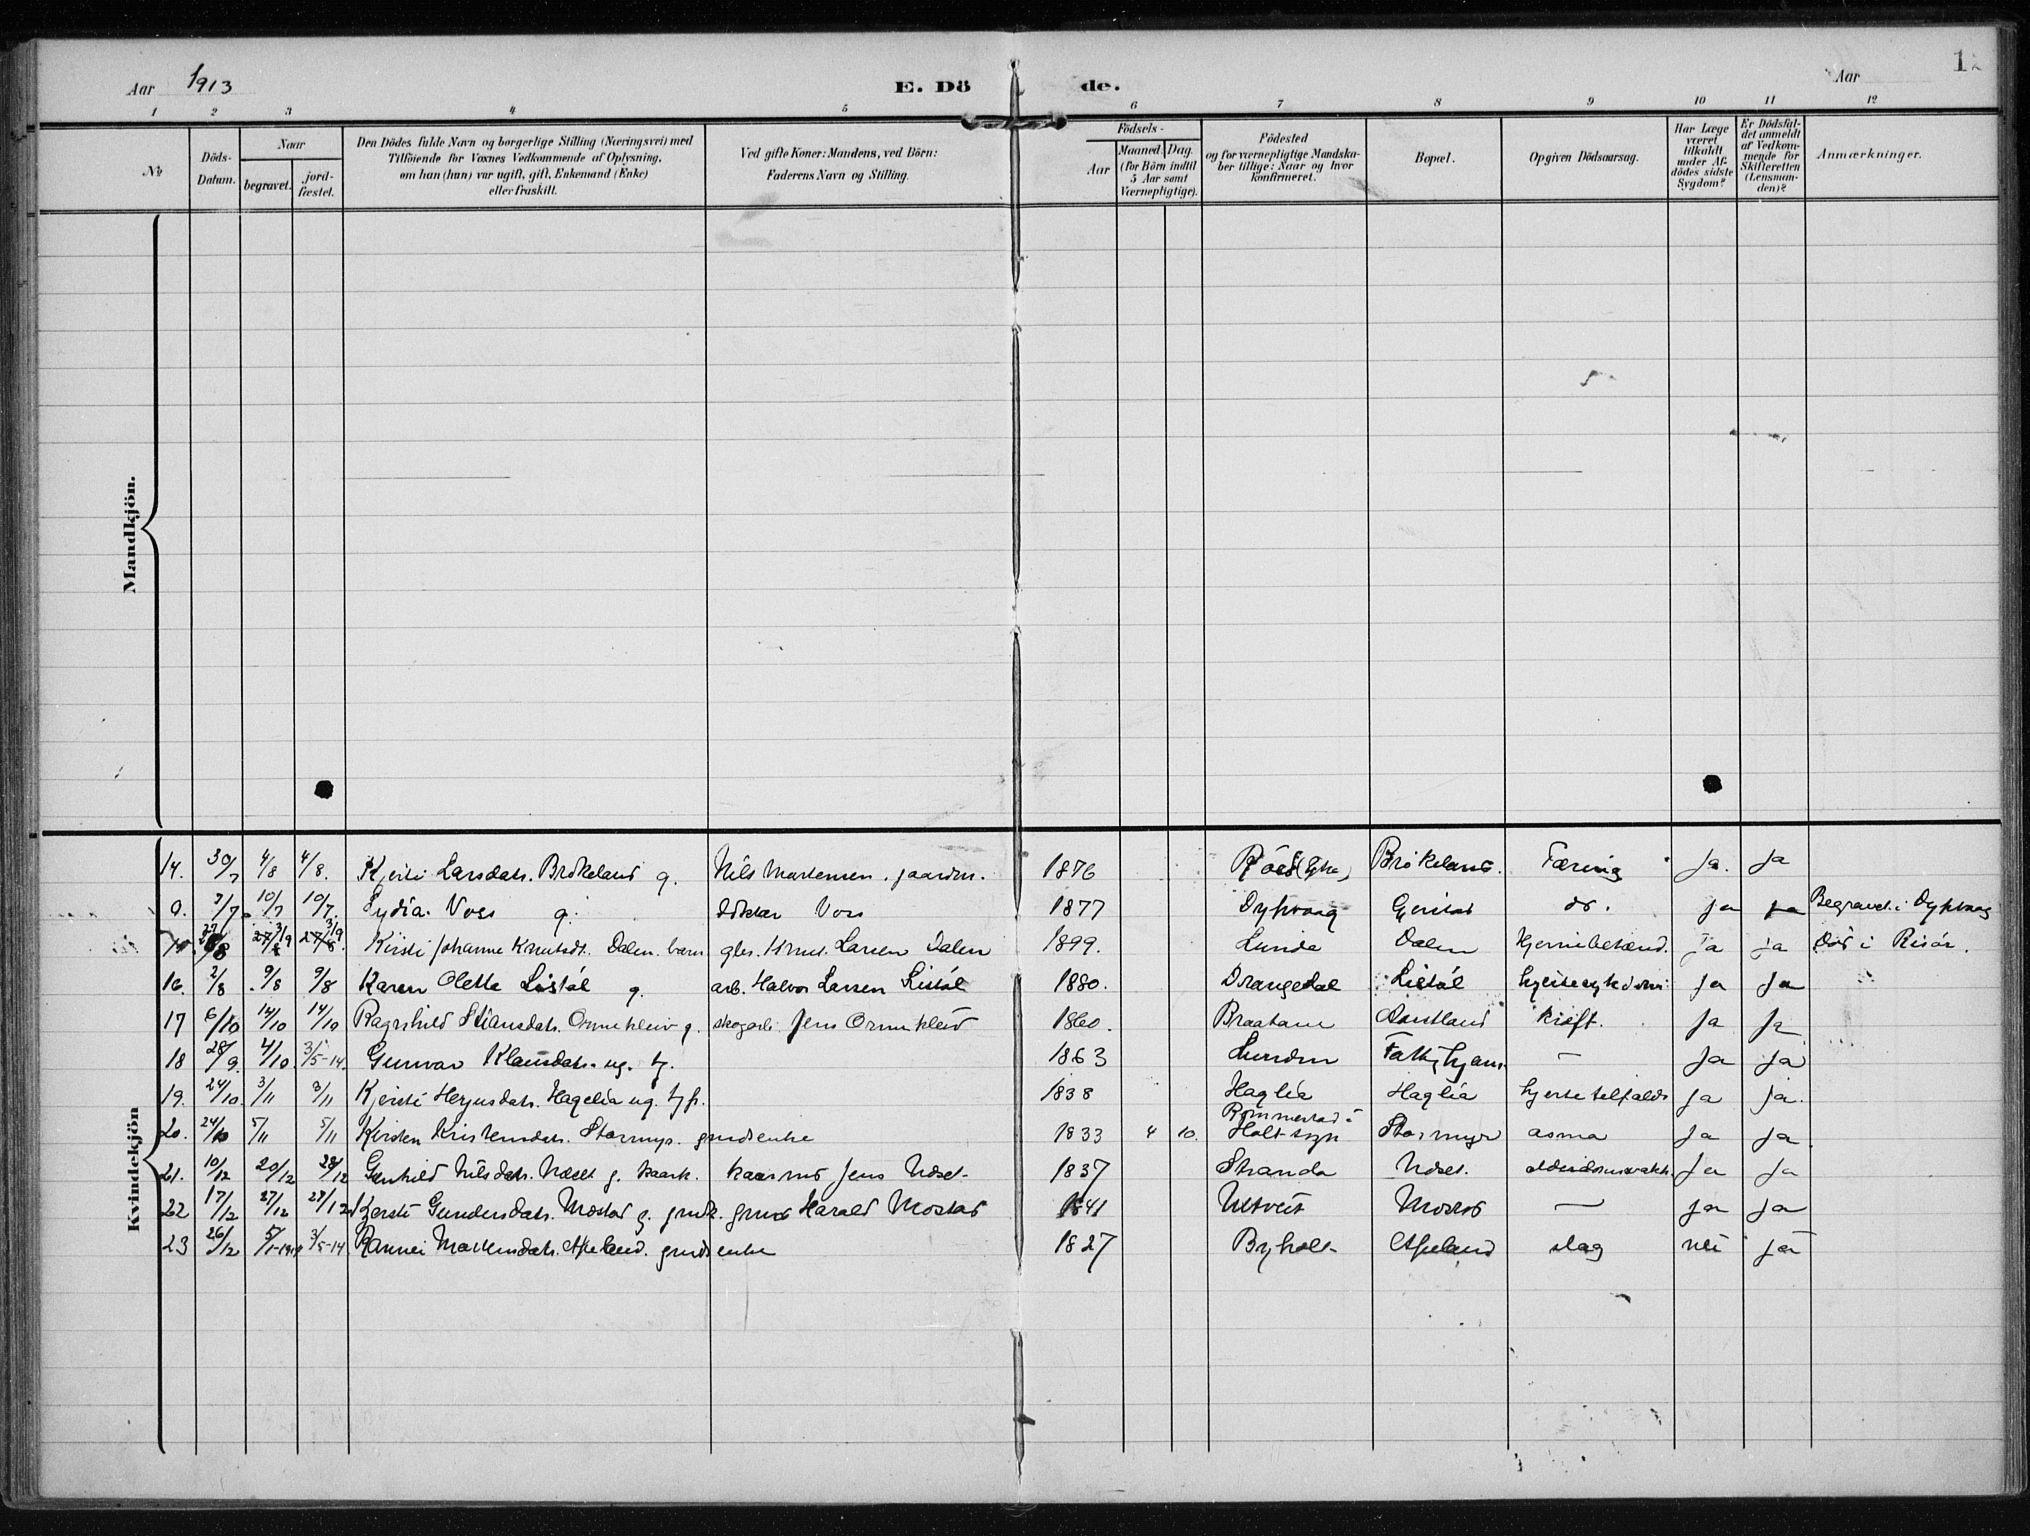 Aar 1913
E. Dö de.
Aar
1 2 3 4 5 6 7 8 9 10 11 12
№
Döds-Datum.
Naar
begravet.
jord-fæstet.
Den Dödes fulde Navn og borgerlige Stilling (Næringsvei) med
Tilföiende for Voxnes Vedkommende af Oplysning,
om han (hun) var ugift, gift, Enkemand (Enke)
eller fraskilt.
Ved gifte Koner: Mandens, ved Börn:
Faderens Navn og Stilling.
Födsels-
Aar
Maaned. Dag.
(for Börn indtil
5 Aar samt
Værnepligtige).
Födested
og for værnepligtige Mandska-
ber tillige: Naar og hvor
konfirmeret.
Bopæl.
Opgiven Dödsaarsag.
Har Læge
været
tilkaldt
under Af-
dödes sidste
Sygdom?
Er Dödsfal-
det anmeldt
af Vedkom-
mende for
Skifteretten
(Lensman-
den)?
Anmærkninger.
Mandkjön.
Kvindekjön
14. 30/7 4/8 4/8. Kjersti Larsdatr. Brökeland g. Nils Martensen. gaardm. 1876 Brökeland. Tæring Ja. Ja
9. 7/7 10/7 10/7. Lydia Voss g. doktor Voss 1877 Dypvaag Gjerstad do. Ja Ja Begravet i Dypvaag
Kirsti Johanne Knutsdt. Dalen. barn gbr. Knut Larsen Dalen 1899. Lunde Dalen hjernebetænd. Ja Ja Död i Risör.
16. 2/8 9/8 9/8 Karen Olette Listöl g. arb. Halvor Larsen Listöl 1880. Drangedal Listöl hjertesykdom Ja Ja
17 6/10 14/10 14/10 Ragnhild Stiansdatr. Ormekleiv g. skogarb. Jens Ormekleiv 1860. Braatane kræft. Ja Ja
18 28/9. 4/10. 3/5-14. Gunvor Klausdatr. ug. tj. 1863 Lunden — Ja Ja
19. 24/10. 3/11 3/11 Kjersti Hagelia ug. 1838 Haglia Haglia Ja Ja.
20. 24/10 5/11 5/11 Kirsten Kristensdatr. Stormyr. grudsenke 1833 4 10. Rommestad i Holt sogn Stormyr asma Ja Ja
21. 10/12 20/12 28/12 Gunhild Nilsdatr. Næset g. kaark. kaarmd Jens Næset 1837 Stranda Næset. Ja Ja
22 17/12 27/12 28/12 Kjersti Gundersdatr. Mostad g. grudk. grudb Harald Mostad 1841 Utveit Mostad — Ja Ja
23 26/12 5/1-1914 3/5-14 Rannei Mattensdatr. Apeland. grudsenke 1827 Byholt Apeland slag nei ja